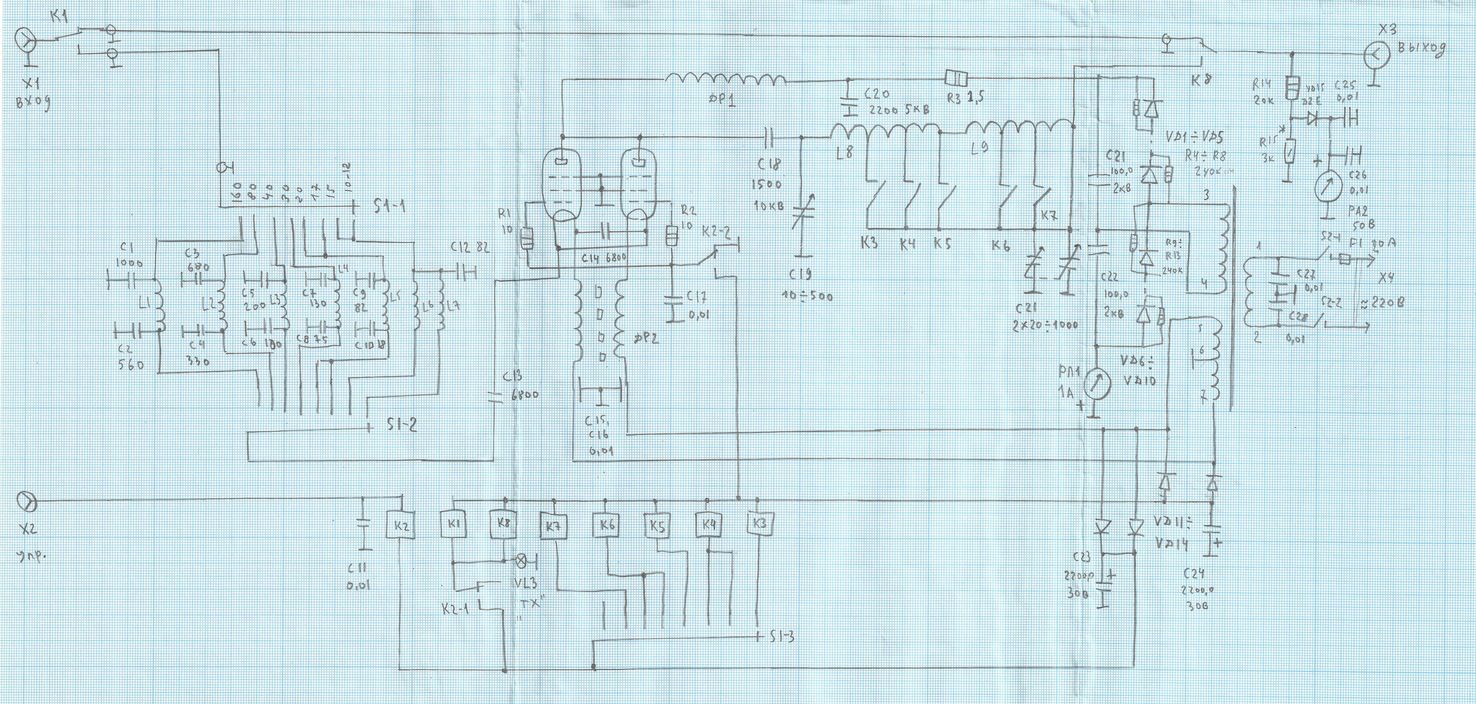 K1
X1
ВХОД
X3
ВЫХОД
K8
ДР1
C20
2200 5КВ
R3 1,5
R14
20К
VД15
Д2Е
C25
0,01
R15*
3К
C26
0,01
PA2
50В
VД1÷VД5
R4÷R8
240К
C21
100,0
2КВ
C18
1500
10КВ
L8
L9
K3
K4
K5
K6
K7
C19
10÷500
C21
2×20÷1000
R1
10
R2
10
K2-2
C14 6800
C17
0,01
ДР2
C15,
C16
0,01
C13
6800
160
80
40
30
20
17
15
10-12
S1-1
C1
1000
L1
C2
560
C3
680
L2
C4
330
C5
200
L3
C6
180
C7
130
L4
C8 75
C9
82
L5
C10 18
L6
L7
C12 82
S1-2
R9÷
R13
240К
C22
100,0
2КВ
VД6÷
VД10
РП1
1А
+
3
4
5
6
7
1
2
S2-1
F1 20А
X4
≈220В
C27
0,01
S2-2
C28
0,01
X2
упр.
C11
0,01
K2
K1
K8
K7
K6
K5
K4
K3
VL3
"TX"
K2-1
S1-3
VД11÷
VД14
C23
2200,0
30В
C24
2200,0
30В